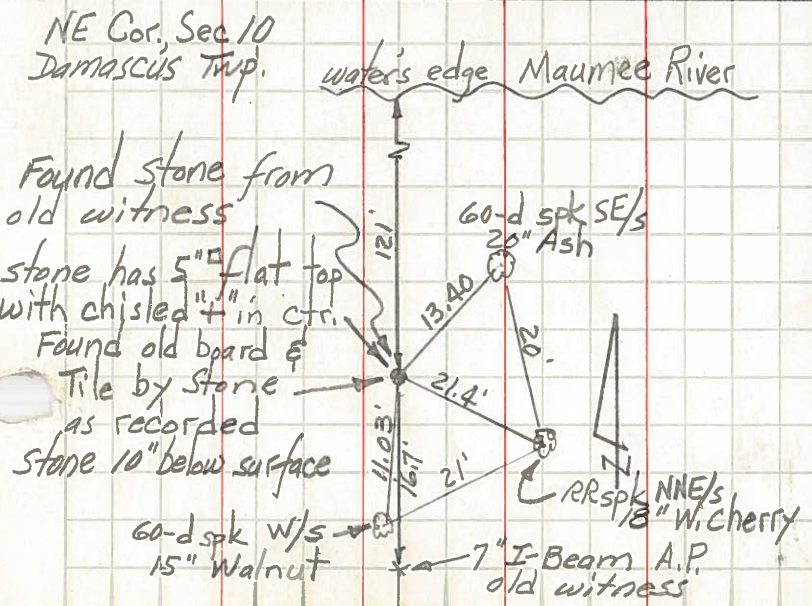 NE Cor., Sec. 10
Damascus Twp.
water's edge Maumee River
Found stone from
old witness
stone has 5"□ flat top
with chisled "+" in ctr.
Found old board &
Tile by Stone
as recorded
Stone 10" below surface
121'
60-d spk SE/s
20" Ash
13.40
20'
21.4'
11.03'
16.7'
21'
N
RR spk NNE/s
18" W. Cherry
60-d spk W/s
15" Walnut
7" I-Beam A.P.
old witness